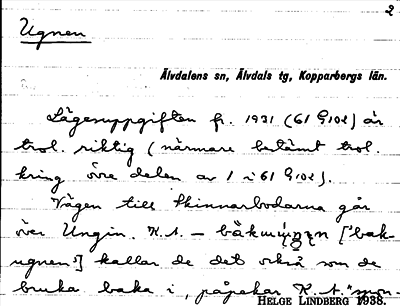 2
Ugnen
Älvdalens sn, Älvdals tg, Kopparbergs län.
Lägesuppgiften fr. 1931 (61 G102) är
trol. riktig (närmare bestämt trol.
kring övre delen av 1 i 61 G102).
Vägen till Skinnarbodarna går
över Ungin. K.A. –
ugnen"] kallar de det också som de
bruka baka i, påpekar K.A. "mor-
HELGE LINDBERG 1938.